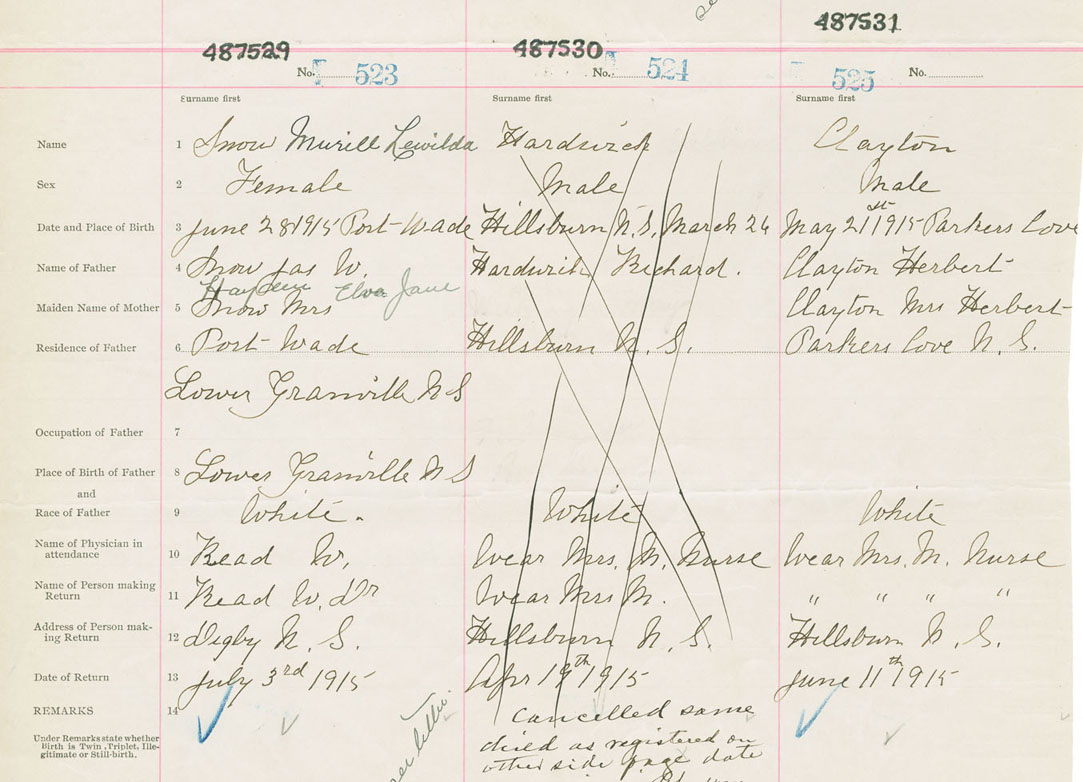 487531
487529 487530
No. 523 No. 524 525 No.
Surname first Surname first Surname first
Name 1 Snow Murill Lewilda Hardwick Clayton
Sex 2 Female Male Male
Date and Place of Birth 3 June 28 1915 Port Wade Hillsburn N.S. March 26 May 21st 1915 Parkers Cove
Name of Father 4 Snow Jas W. Hardwick Richard. Clayton Herbert
Hayden Elva Jane
Maiden Name of Mother 5 Snow Mrs Clayton Mrs Herbert
Residence of Father 6 Port Wade Hillsburn N. S. Parkers Cove N. S.
Lower Granville N S
Occupation of Father 7
Place of Birth of Father 8 Lower Granville N S
and
Race of Father 9 White. White White
Name of Physician in
attendance 10 Read W. Wear Mrs. M. Nurse Wear Mrs. M. Nurse
Name of Person making
Return 11 Read W. Dr Wear Mrs M. " " " "
Address of Person mak-
ing Return 12 Digby N. S. Hillsburn N. S. Hillsburn N. S.
Date of Return 13 July 3rd 1915 Apr 19th 1915 June 11th 1915
REMARKS 14 Cancelled same
Under Remarks state whether
Birth is Twin, Triplet, Ille-
gitimate or Still-birth.
child as registered on
other side page date